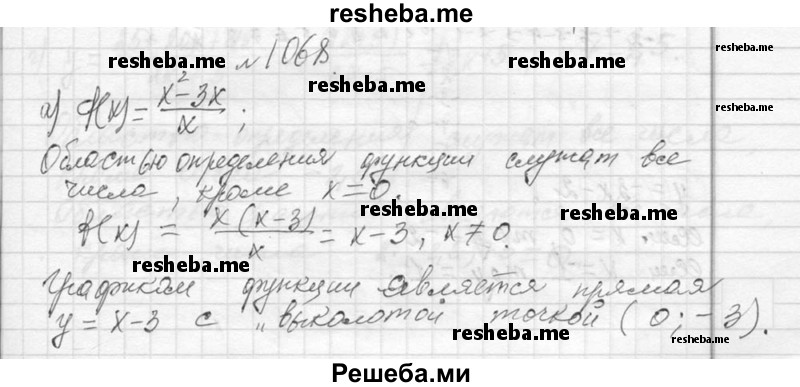 resheba.me
resheba.me № 1068 resheba.me
resheba.me
а) f(x) = x² - 3x / x ;
Областью определения функции служат все
числа, кроме x = 0.
resheba.me resheba.me
f(x) = x(x-3) / x = x - 3, x ≠ 0.
resheba.me
Графиком функции является прямая
y = x - 3 с „выколотой точкой (0; -3).
resheba.me resheba.me
Решеба.ми